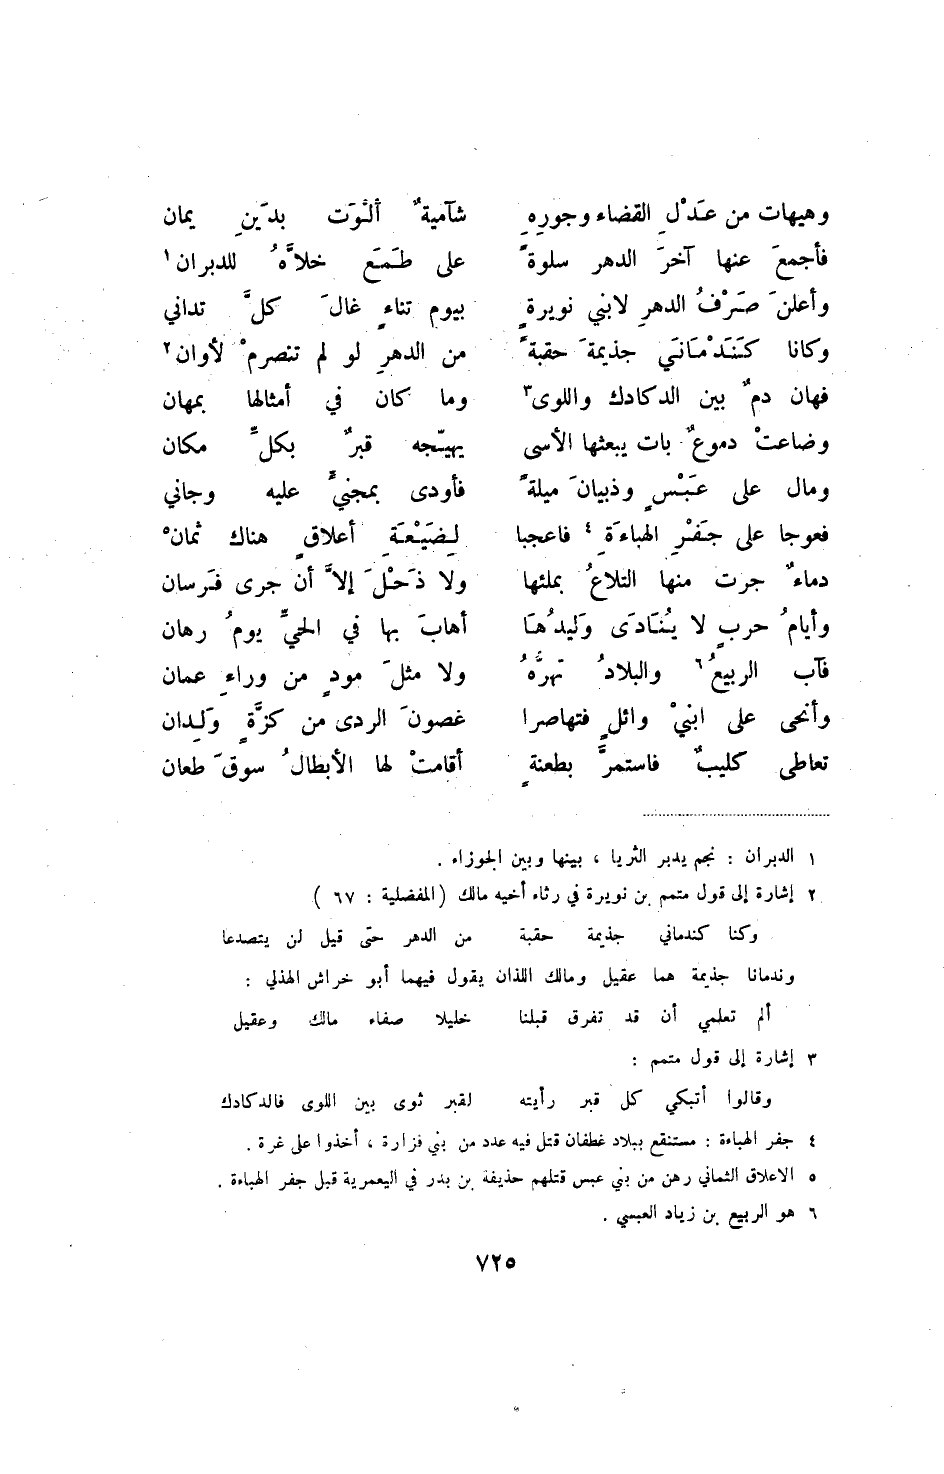 وهيهات من عَدْلِ القضاء وجورِهِ شآميةٌ ألْوَت بدَينِ يمان
فأجمعَ عنها آخرَ الدهر سلوةً على طَمَعٍ خلاَّهُ للدبران١
وأعلنَ صَرْفُ الدهرِ لابني نويرةٍ بيوم تناءٍ غالَ كلَّ تداني
وكانا كنَدْمَانَي جذيمةَ حقبةً من الدهرِ لو لم تنصرمْ لأوان٢
فهان دمٌ بين الدكادك واللوى٣ وما كان في أمثالها بمهان
وضاعتْ دموعٌ بات يبعثها الأسى يهيّجه قبرٌ بكلِّ مكان
ومال على عَبْسٍ وذبيانَ ميلةً فأودى بمجنيٍّ عليه وجاني
فعوجا على جَفْرِ الهباءَةِ٤ فاعجبا لِضَيْعَةِ أعلاقٍ هناك ثمان٥
دماءٌ جرت منها التلاعُ بملئها ولا ذَحْلَ إلاَّ أن جرى فَرسان
وأيامُ حربٍ لا يُنَادَى وَليدُهَا أهابَ بها في الحيِّ يومُ رهان
فآب الربيعُ٦ والبلادُ تهرُّهُ ولا مثلَ مودٍ من وراءِ عمان
وأنحى على ابنيْ وائلٍ فتهاصرا غصونَ الردى من كزَّةٍ وَلِدان
تعاطى كليبٌ فاستمرَّ بطعنةٍ أقامتْ لها الأبطالُ سوقَ طعان
١ الدبران : نجم يدبر الثريا ، بينها وبين الجوزاء .
٢ إشارة إلى قول متمم بن نويرة في رثاء أخيه مالك ( المفضلية : ٦٧ )
وكنا كندماني جذيمة حقبة من الدهر حتّى قيل لن يتصدعا
وندمانا جذيمة هما عقيل ومالك اللذان يقول فيهما أبو خراش الهذلي :
ألم تعلمي أن قد تفرق قبلنا خليلا صفاء مالك وعقيل
٣ إشارة إلى قول متمم :
وقالوا أتبكي كل قبر رأيته لقبر ثوى بين اللوى فالدكادك
٤ جفر الهباءة : مستنقع ببلاد غطفان قتل فيه عدد من بني فزارة ، أخذوا على غرة .
٥ الاعلاق الثماني رهن من بني عبس قتلهم حذيفة بن بدر في اليعمرية قبل جفر الهباءة .
٦ هو الربيع بن زياد العبسي .
٧٢٥